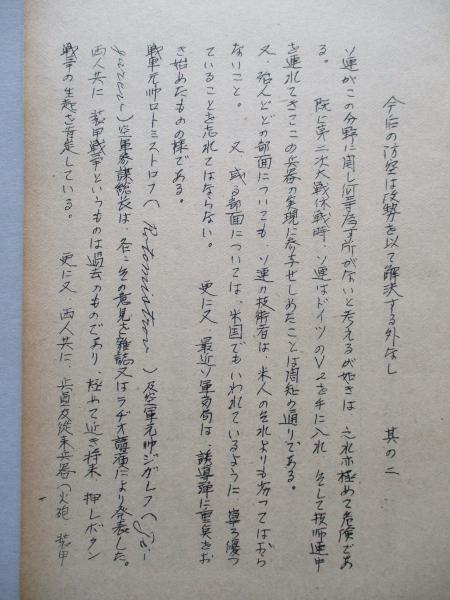 今后の防空は攻勢を以て解決する外なし　其の二
ソ連がこの分野に関し何等為す所がないと考えるが如きは 之れ亦極めて危険であ
る。 既に第二次大戦休戦時、ソ連はドイツのV2を手に入れ そして技師連中
を連れてきてこの兵器の実現に参与せしめたことは周知の通りである。
又、殆んどどの部面についても、ソ連の技術者は、米人のそれよりも劣つてはおら
ないこと。 又 或る部面については、米国でもいわれているように 寧ろ優つ
ていることを忘れてはならない。 更に又 最近ソ軍当局は、誘導弾に重点をお
き始めたものの様である。
戦車元帥ロトミストロフ（Rotomistrow）及空軍元帥ジガレフ（Ji-
garew）空軍参謀総長は、その意見を雑誌又はラヂオ講演により発表した。
両人共に 装甲戦争というものは過去のものであり、極めて近き将来 押しボタン
戦争の生起を肯定している。 更に又 両人共に 兵員及従来兵器（火砲 装甲